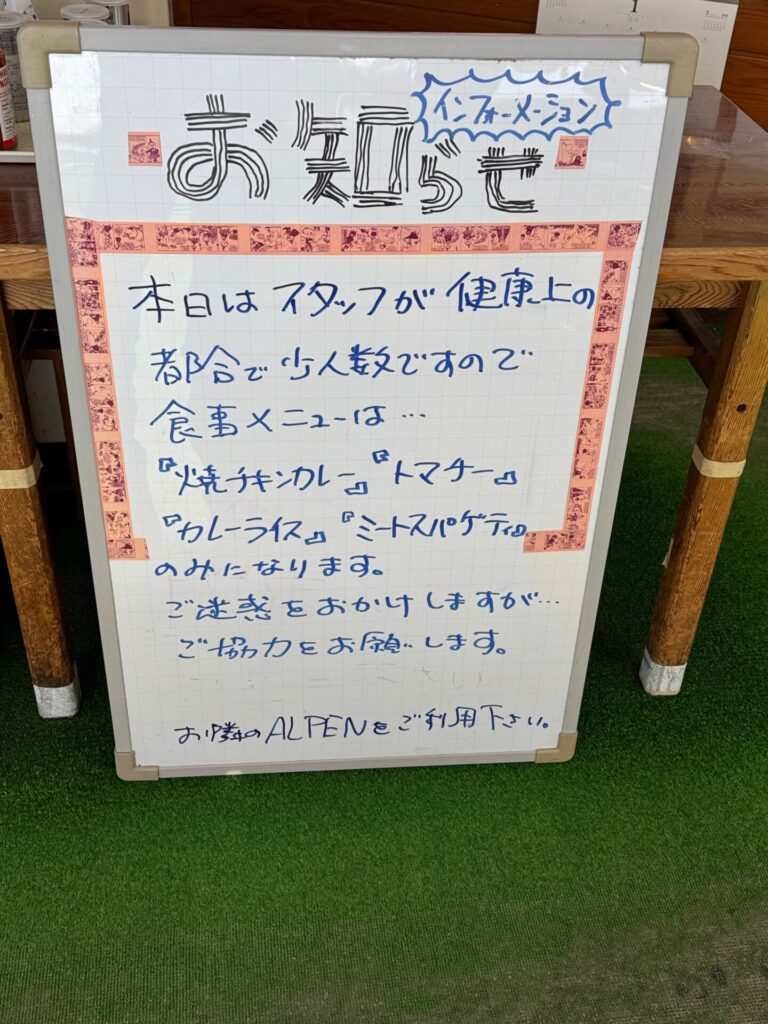 インフォーメーション
お知らせ
本日はスタッフが健康上の
都合で少人数ですので
食事メニューは…
『焼チキンカレー』『トマチー』
『カレーライス』『ミートスパゲティ』
のみになります。
ご迷惑をおかけしますが…
ご協力をお願いします。
お隣のALPENをご利用下さい。